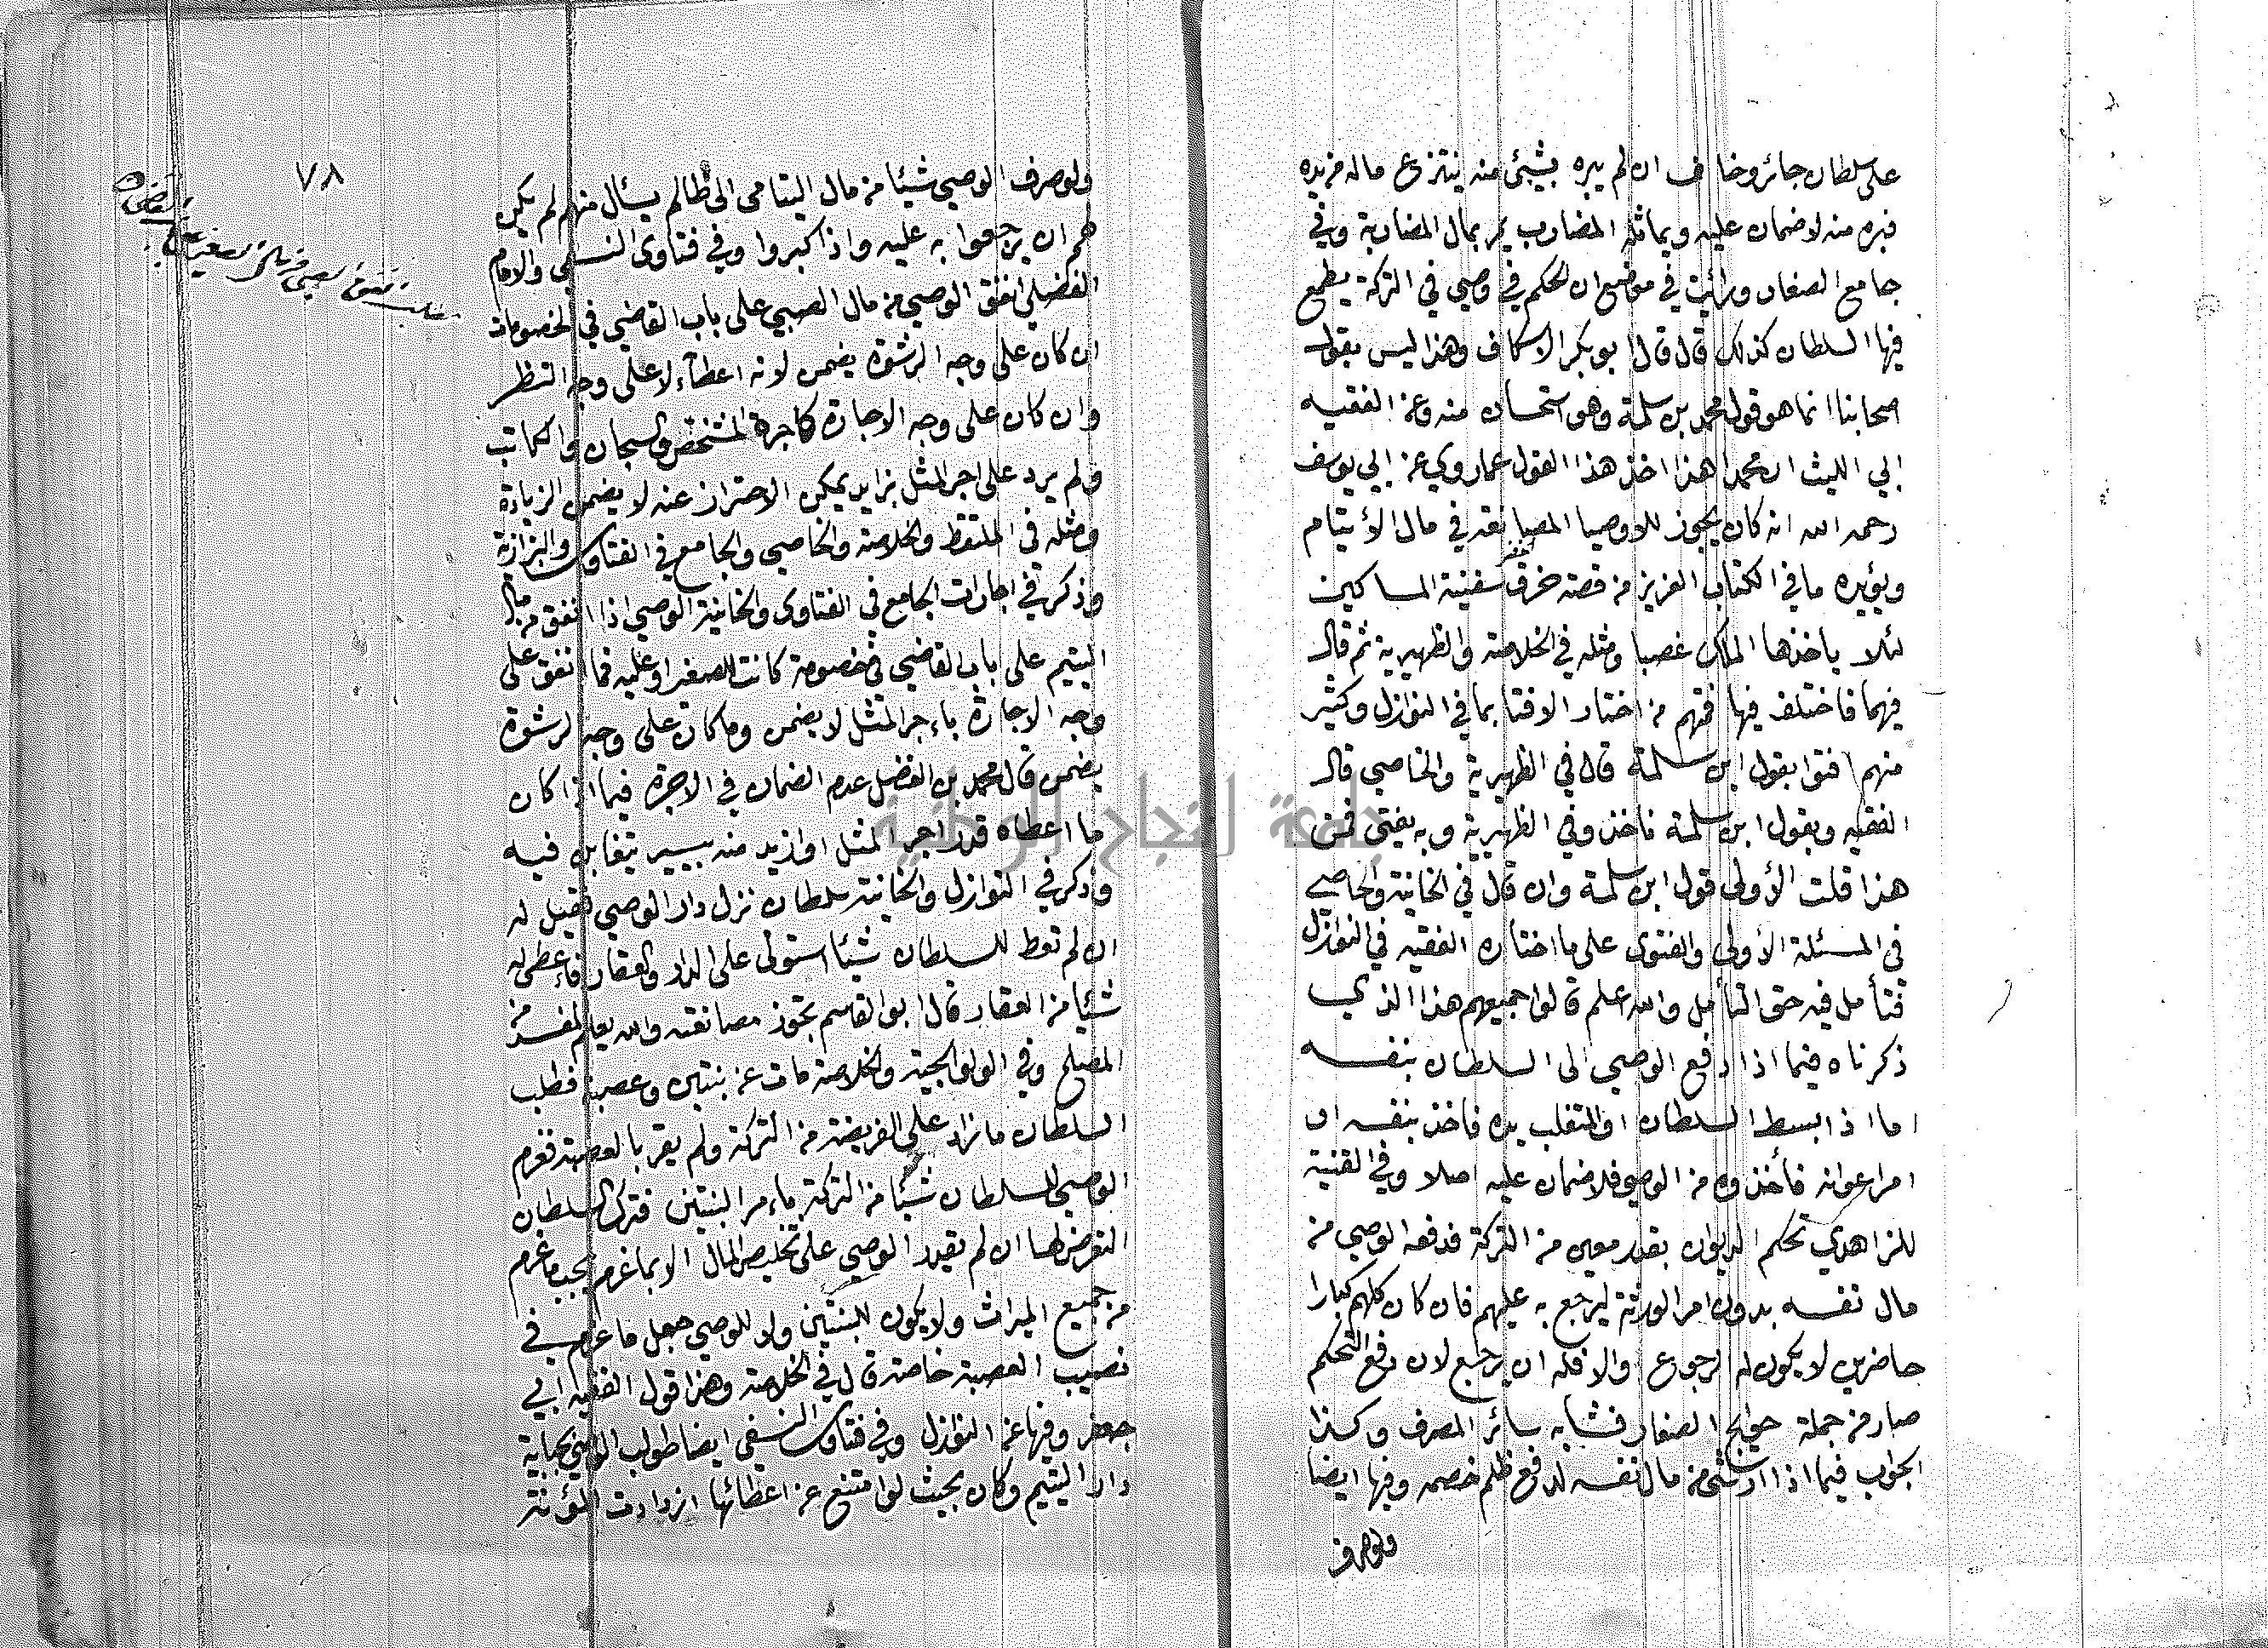 على سلطان جائر وخاف ان لم يبره بشيئ منه ينتزع ماله من يده
فبره منه لا ضمان عليه ويماثله المضارب يمر بمال المضاربة وفي
جامع الصغار ورأيت في موضع ان الحكم في وصي في التركة يطمع
فيها السلطان كذلك قال قال ابو بكر الاسكاف وهذا ليس بقول
اصحابنا انما هو قول محمد بن سلمة وهو استحسان منه وعن الفقيه
ابي الليث ان محمدا هذا اخذ هذا القول عما روي عن ابي يوسف
رحمه الله انه كان يجوز للاوصيا المصانعه في مال الأيتام
ويؤيده ما في الكتاب العزيز من قصة خرق سفينة المساكين
لئلا ياخذها الملك غصبا ومثله في الخلاصة والظهيرية ثم قال
فيهما فاختلف فيها فمنهم من اختار الافتا بما في النوازل وكثير
منهم افتوا بقول ابن سلمة قال في الظهيرية والخاصي قال
الفقيه وبقول ابن سلمة ناخذ وفي الظهيرية وبه يفتى فمن
هذا قلت الأولى قول ابن سلمة وان قال في الخانية والخاصي
في المسئلة الأولى والفتوى على ما اختاره الفقيه في النوازل
فتأمل فيه حق التأمل والله اعلم قالوا جميعهم هذا الذي
ذكرناه فيما اذا دفع الوصي الى السلطان بنفسه
اما اذا بسط السلطان او المتغلب يده فاخذ بنفسه او
امر اعوانه فأخذوه من الوصي فلا ضمان عليه اصلا وفي القنية
للزاهدي تحكم الديوان بقدر معين من التركة فدفعه الوصي من
مال نفسه بدون امر الورثة ليرجع به عليهم فان كان كلهم كبارا
حاضرين لا يكون له الرجوع والا فله ان يرجع لان دفع التحكم
صار من جملة حوايج الصغار فشابه سائر المصرف وكذا
الجواب فيما اذا ارشى من مال نفسه لدفع ظلم خصمه وفيها ايضا
ولو صرف
٧٨
ولو صرف الوصي شيئا من مال اليتامى الى ظالم يسأل منهم لم يكن
لهم ان يرجعوا به عليه واذا كبروا وفي فتاوى النسفي والامام
الفضلي انفق الوصي من مال الصبي على باب القاضي في الخصومات
ان كان على وجه الرشوة يضمن لانه اعطاء لا على وجه النظر
وان كان على وجه الاجارة كاجرة المشخص والسجان والكاتب
ولم يزد على اجر المثل بزايد يمكن الاحتراز عنه لا يضمن الزيادة
ومثله في الملتقط والخلاصة والخاصي والجامع في الفتاوى والبزازية
وذكر في اجارات الجامع في الفتاوى والخانية الوصي اذا انفق من مال
اليتيم على باب القاضي في خصومة كانت للصغير او عليه فما انفق على
وجه الاجارة باجر المثل لا يضمن وما كان على وجه الرشوة
يضمن قال محمد بن الفضل عدم الضمان في الاجرة فيما اذا كان
ما اعطاه قدر اجر المثل او ازيد منه بيسير يتغابن فيه
وذكر في النوازل والخانية سلطان نزل دار الوصي فقيل له
ان لم تعط للسلطان شيئا استولى على الدار والعقار فاعطى له
شيئا من العقار قال ابو القاسم تجوز مصانعته والله يعلم المفسد من
المصلح وفي الولوالجية والخلاصة مات عن بنتين وعصبة فطلب
السلطان ما زاد على الفريضة من التركة ولم يقر بالعصبة فغرم
الوصي للسلطان شيئا من التركة بامر البنتين فترك السلطان
التعرض لها ان لم يقدر الوصي على تخليص المال الا بما غرم يحسب ما غرم
من جميع الميراث ولا يكون للبنتين ولا للوصي جعل ما غرم في
نصيب العصبة خاصة قال في الخلاصة وهذا قول الفقيه ابي
جعفر وفيها عن النوازل وفي فتاوى النسفي ايضا طولب الوصي بجباية
دار اليتيم وكان بحيث لو امتنع عن اعطائها ازدادت المؤنة
جامعة النجاح الوطنية